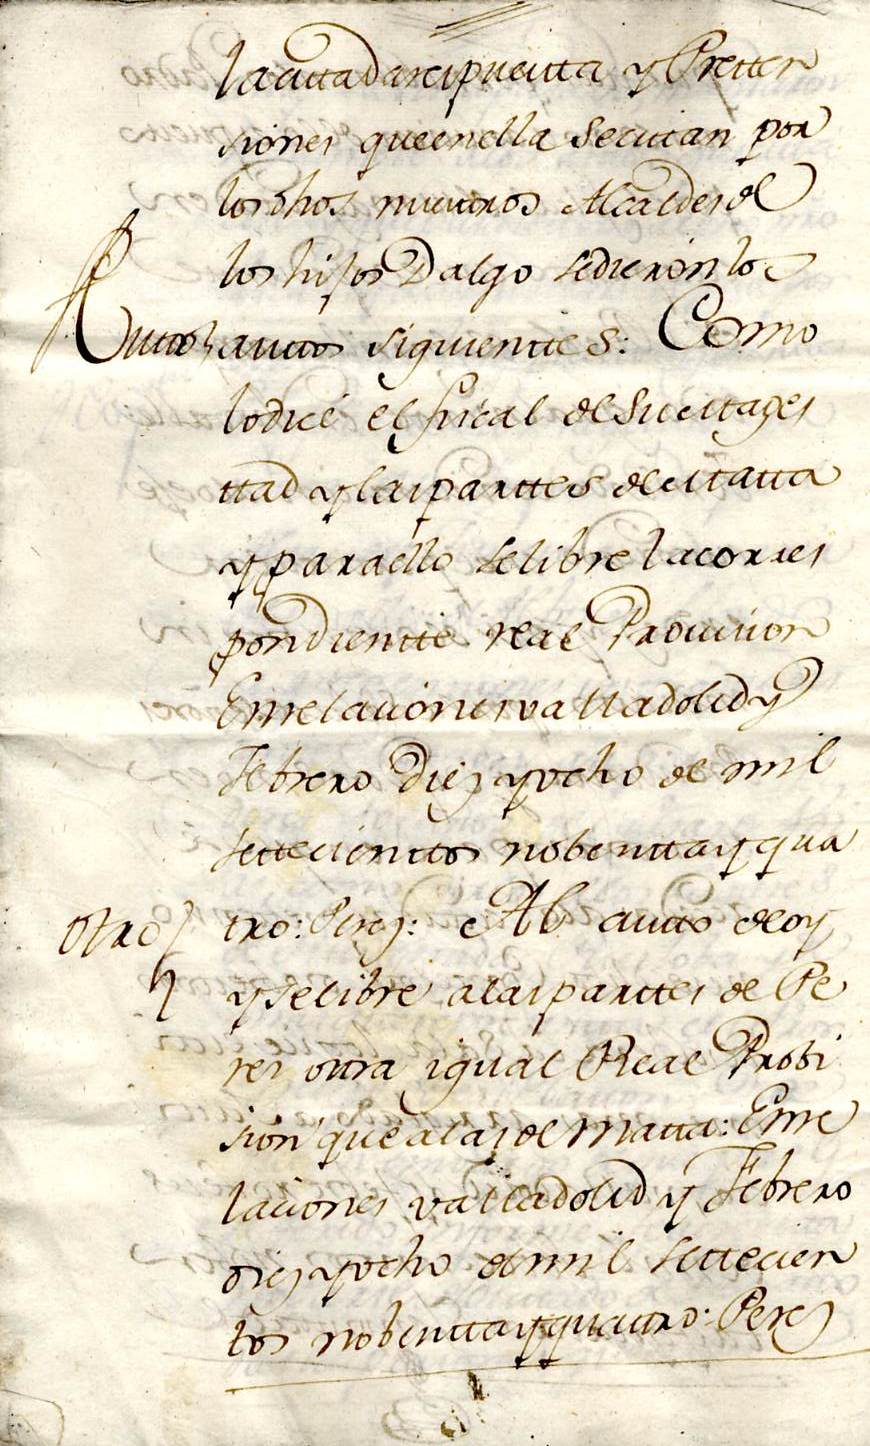 la cittada respuestta y Pretten
siones que en ella se cittan por
los dhos nuestros Alcaldes de
los hijos Dalgo se dieron los
Auttos auttos siguienttes: Como
lo dice el fiscal de Su Mages
ttad y las parttes de Matta
y para ello se libre la corres
pondientte real Provision
En relaciones valladolid y
Febrero Diez y ocho de mil
settecienttos nobentta y qua
Otro tro: Perez: Al autto de oy
y se libre a las parttes de Pe
res ottra igual Real Probi
sion que a las de Matta: En re
laciones valladolid y Febrero
diez y ocho de mil settecien
tos nobentta y quattro: Perez